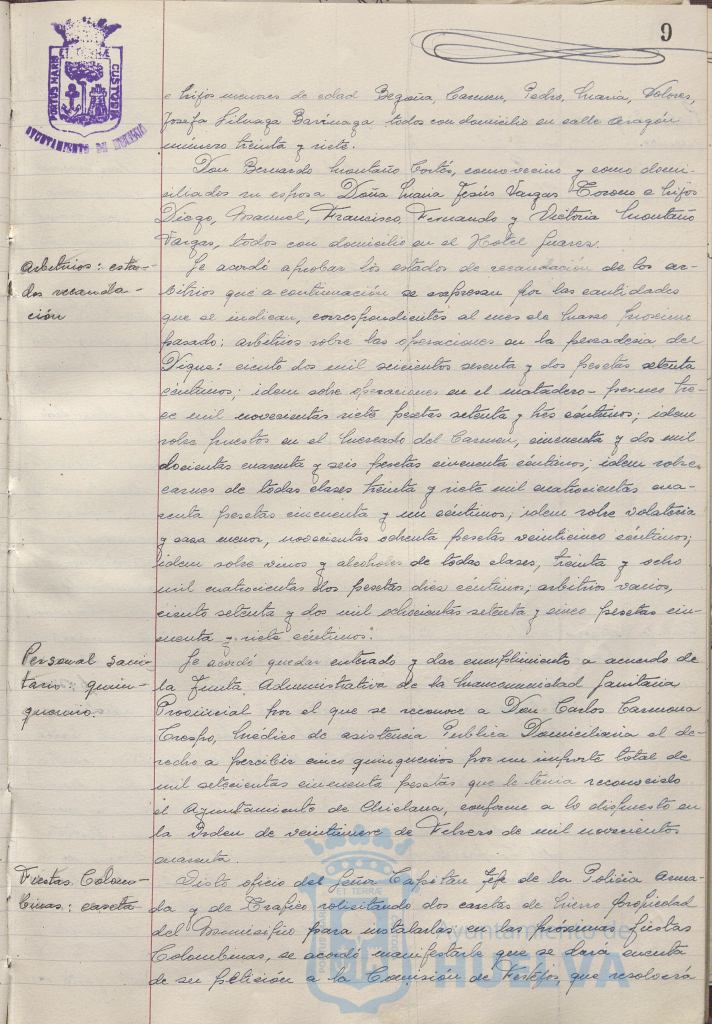 9
PORTUS MARIS
ET TERRAE
CUSTODIA
AYUNTAMIENTO DE HUELVA
e hijos menores de edad Begoña, Carmen, Pedro, Maria, Dolores,
Josefa Siluaga Barinaga todos con domicilio en calle Aragón
número treinta y siete.
Don Bernardo Montaño Cortés, como vecino y como domi-
ciliados su esposa Doña Maria Jesús Vargas e hijos
Diego, Manuel, Francisco, Fernando y Victoria Montaño
Vargas, todos con domicilio en el Hotel Suarez.
Arbitrios: esta-
dos recauda-
ción
Se acordó aprobar los estados de recaudación de los ar-
bitrios que a continuación se expresan por las cantidades
que se indican, correspondientes al mes de Marzo próximo
pasado: arbitrios sobre las operaciones en la pescaderia del
Dique: ciento dos mil seiscientos sesenta y dos pesetas setenta
céntimos; idem sobre operaciones en el matadero
mil novecientas siete pesetas setenta y tres céntimos; idem
sobre puestos en el Mercado del Carmen, cincuenta y dos mil
docientas cuarenta y seis pesetas cincuenta céntimos; idem sobre
carnes de todas clases treinta y siete mil cuatrocientas cua-
renta pesetas cincuenta y un céntimos; idem sobre volateria
y caza menor, novecientas ochenta pesetas veinticinco céntimos;
idem sobre vinos y alcoholes de todas clases, treinta y ocho
mil cuatrocientas dos pesetas diez céntimos; arbitrios varios,
ciento setenta y dos mil ochocientas setenta y cinco pesetas cin-
cuenta y siete céntimos.
Personal sani-
tario: quin-
quenio.
Se acordó quedar enterado y dar cumplimiento a acuerdo de
la Junta Administrativa de la Mancomunidad Sanitaria
Provincial por el que se reconoce a Don Carlos Carmona
Crespo, Médico de asistencia Publica Domiciliaria el de-
recho a percibir cinco quinquenios por un importe total de
mil setecientas cincuenta pesetas que le tenia reconocido
el Ayuntamiento de Chiclana, conforme a lo dispuesto en
la Orden de veintinueve de Febrero de mil novecientos
cuarenta.
Fiestas Colom-
binas: caseta
Visto oficio del Señor Capitán Jefe de la Policía Arma-
da y de Trafico solicitando dos casetas de hierro propiedad
del Municipio para instalarlas en las próximas fiestas
Colombinas, se acordó manifestarle que se dará cuenta
de su petición a la Comisión de Festejos, que resolverá
Ayuntamiento de
HUELVA